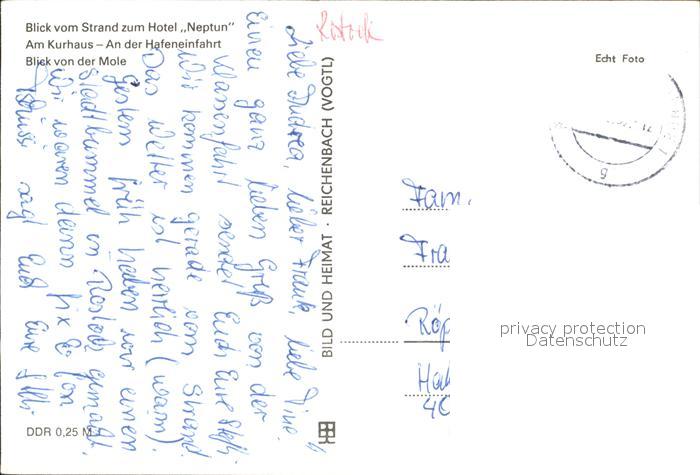 Blick vom Strand zum Hotel „Neptun"
Am Kurhaus – An der Hafeneinfahrt
Blick von der Mole
Echt Foto
BILD UND HEIMAT · REICHENBACH (VOGTL)
Liebe Andrea, lieber Frank, liebe
Einen ganz lieben Gruß von der
Klassenfahrt sendet Euch Eure
Wir kommen gerade vom Strand.
Das Wetter ist herrlich (warm).
Gestern früh haben wir einen
Stadtbummel in Rostock gemacht.
Wir waren dann fix & fox
Tschüssi sagt Euch Eure
Fam.
Fra
Röp
40
privacy protection
Datenschutz
DDR 0,25 M